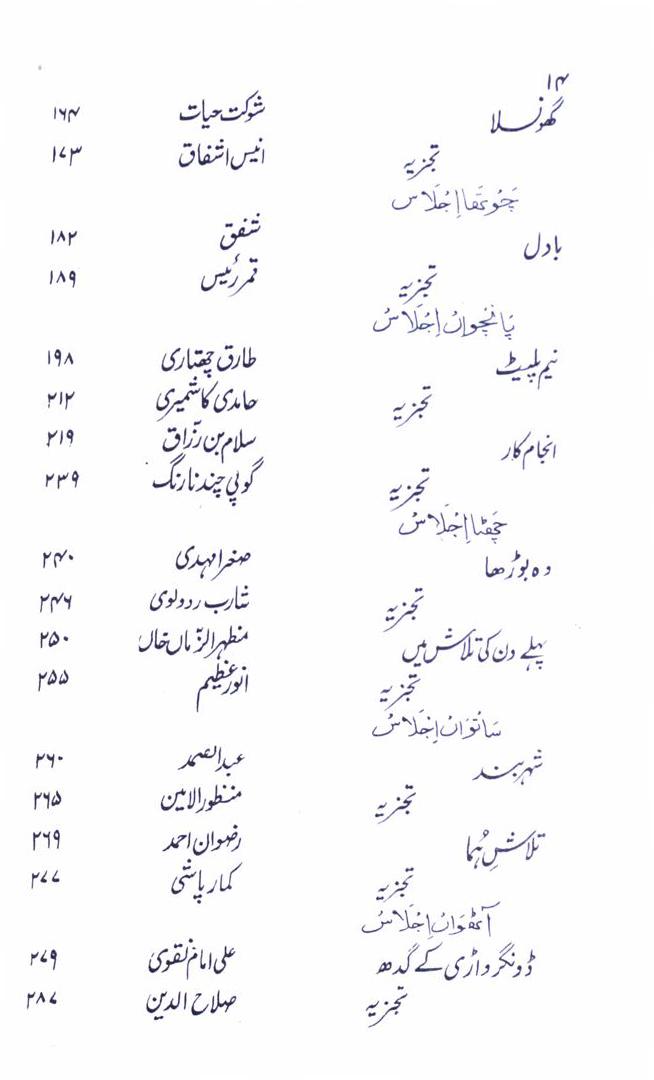 ۱۴
گھونسلا شوکت حیات ۱۶۴
تجزیہ انیس اشفاق ۱۷۳
چوتھا اجلاس
بادل شفق ۱۸۲
تجزیہ قمر رئیس ۱۸۹
پانچواں اجلاس
نیم پلیٹ طارق چھتاری ۱۹۸
تجزیہ حامدی کاشمیری ۲۱۲
انجام کار سلام بن رزّاق ۲۱۹
تجزیہ گوپی چند نارنگ ۲۳۹
چھٹا اجلاس
وہ بوڑھا صغرا مہدی ۲۴۰
تجزیہ شارب ردولوی ۲۴۶
پہلے دن کی تلاش میں مظہر الزّماں خاں ۲۵۰
تجزیہ انور عظیم ۲۵۵
ساتواں اجلاس
شہر بند عبدالصمد ۲۶۰
تجزیہ منظور الامین ۲۶۵
تلاشِ ہُما رضوان احمد ۲۶۹
تجزیہ کمار پاشی ۲۷۷
آٹھواں اجلاس
ڈونگر واڑی کے گدھ علی امام نقوی ۲۷۹
تجزیہ صلاح الدین ۲۸۷